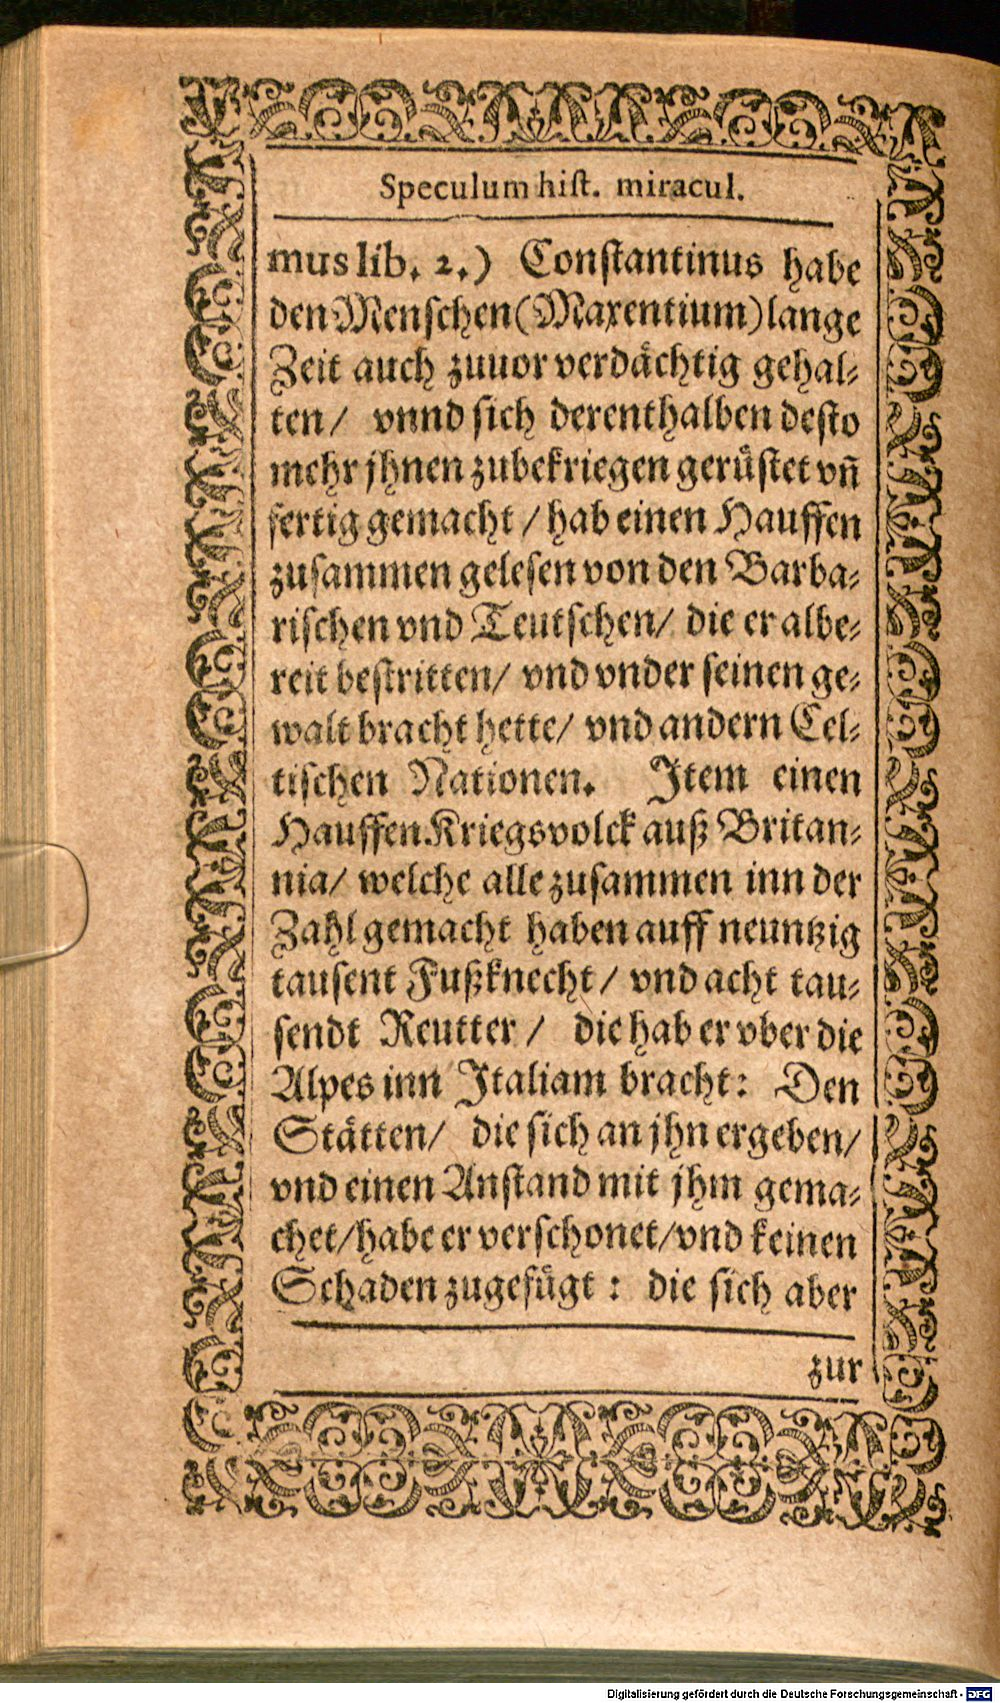 Speculum hist. miracul.
mus lib. 2.) Constantinus habe
den Menschen (Maxentium) lange
Zeit auch zuuor verdächtig gehal-
ten / vnnd sich derenthalben desto
mehr jhnen zubekriegen gerüstet vn̄
fertig gemacht / hab einen Hauffen
zusammen gelesen von den Barba-
rischen vnd Teutschen / die er albe-
reit bestritten / vnd vnder seinen ge-
walt bracht hette / vnd andern Cel-
tischen Nationen. Item einen
Hauffen Kriegsvolck auß Britan-
nia / welche alle zusammen inn der
Zahl gemacht haben auff neuntzig
tausent Fußknecht / vnd acht tau-
sendt Reutter / die hab er vber die
Alpes inn Italiam bracht: Den
Stätten / die sich an jhn ergeben /
vnd einen Anstand mit jhm gema-
chet / habe er verschonet / vnd keinen
Schaden zugefügt : die sich aber
zur
Digitalisierung gefördert durch die Deutsche Forschungsgemeinschaft - DFG